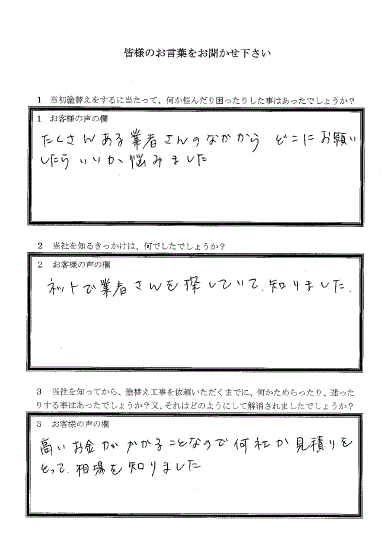 皆様のお言葉をお聞かせ下さい
1 当初塗替えをするに当たって、何か悩んだり困ったりした事はあったでしょうか？
1 お客様の声の欄
たくさんある業者さんのなかから どこにお願い
したらいいか悩みました
2 当社を知るきっかけは、何でしたでしょうか？
2 お客様の声の欄
ネットで業者さんを探していて、知りました。
3 当社を知ってから、塗替え工事を依頼いただくまでに、何かためらったり、迷った
りする事はあったでしょうか？又、それはどのようにして解消されましたでしょうか？
3 お客様の声の欄
高いお金がかかることなので何社か見積りを
とって、相場を知りました